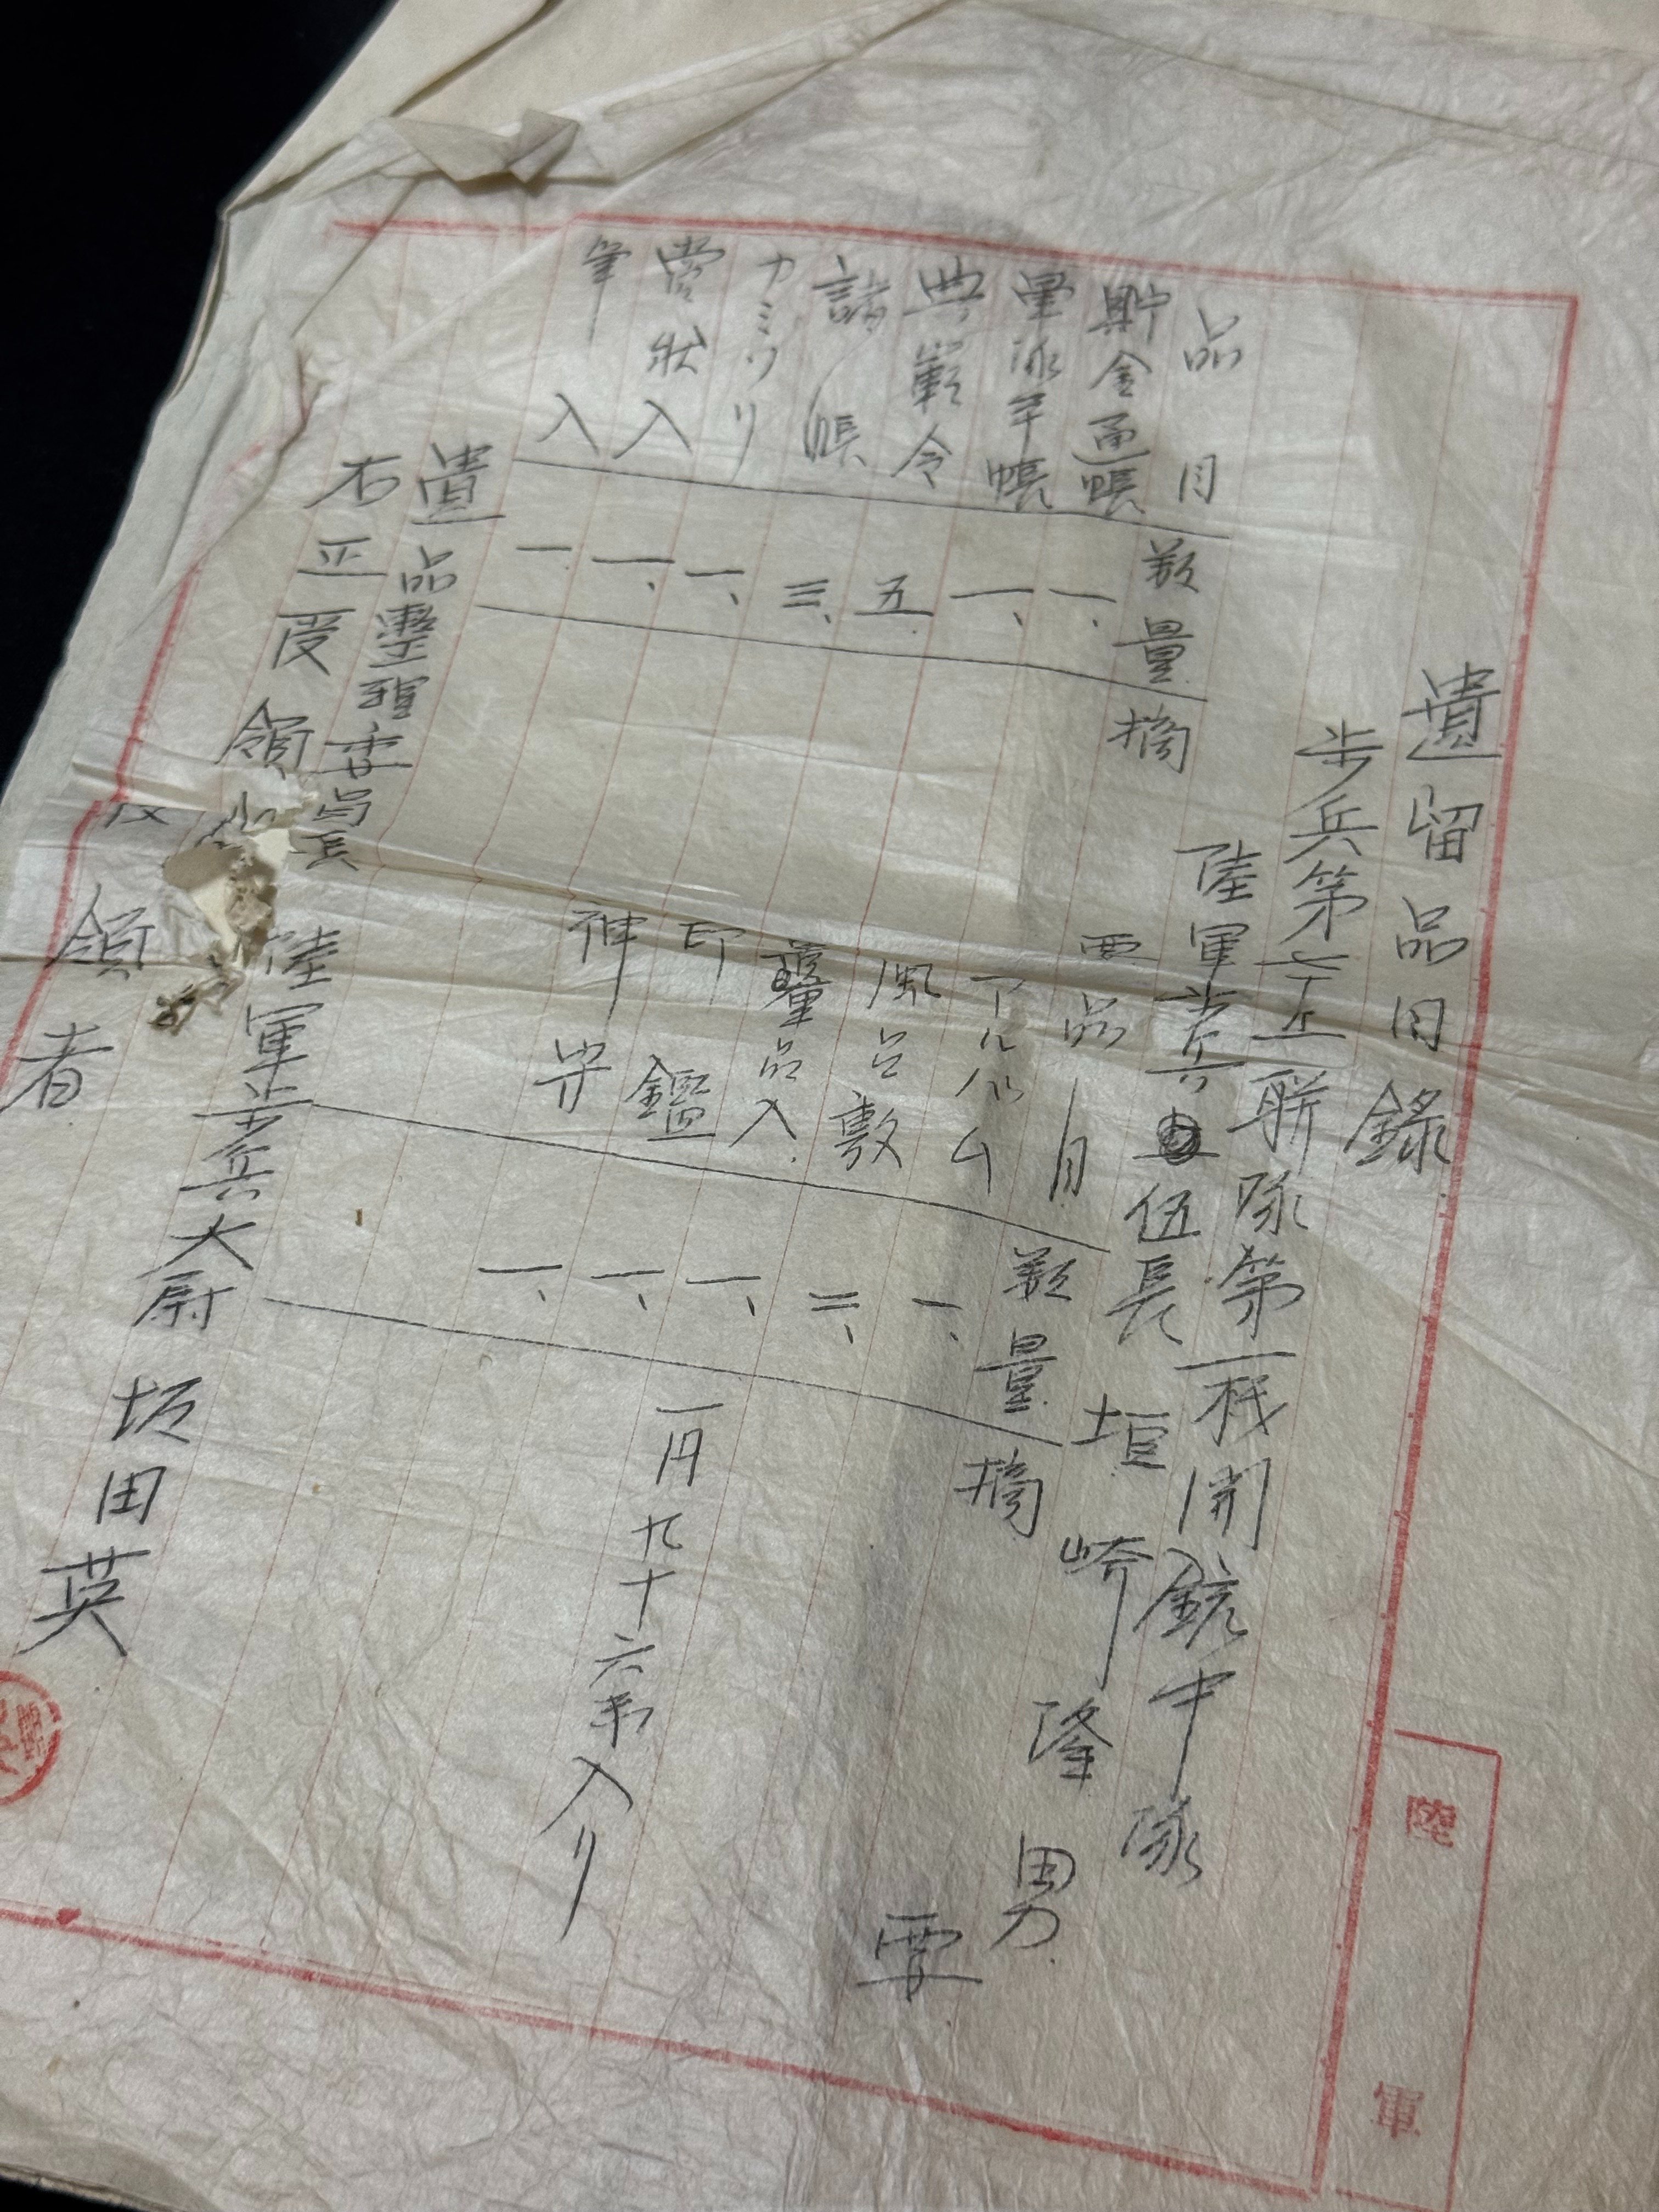 遺留品目録
歩兵第七五聯隊第一机関銃中隊
陸軍歩兵伍長 垣崎隆男
品目 数量 摘要
貯金通帳 一、
軍隊手帳 一、
典範令 五、
諸帳 三、
カミソリ 一、
賞状入 一、
筆入 一、
品目 数量 摘要
アルバム 一、
風呂敷 二、
貴重品入 一、 一円九十六銭入リ
印鑑 一、
神符 一、
遺品整理委員長
陸軍歩兵大尉 坂田英
右正受領
領者
陸軍